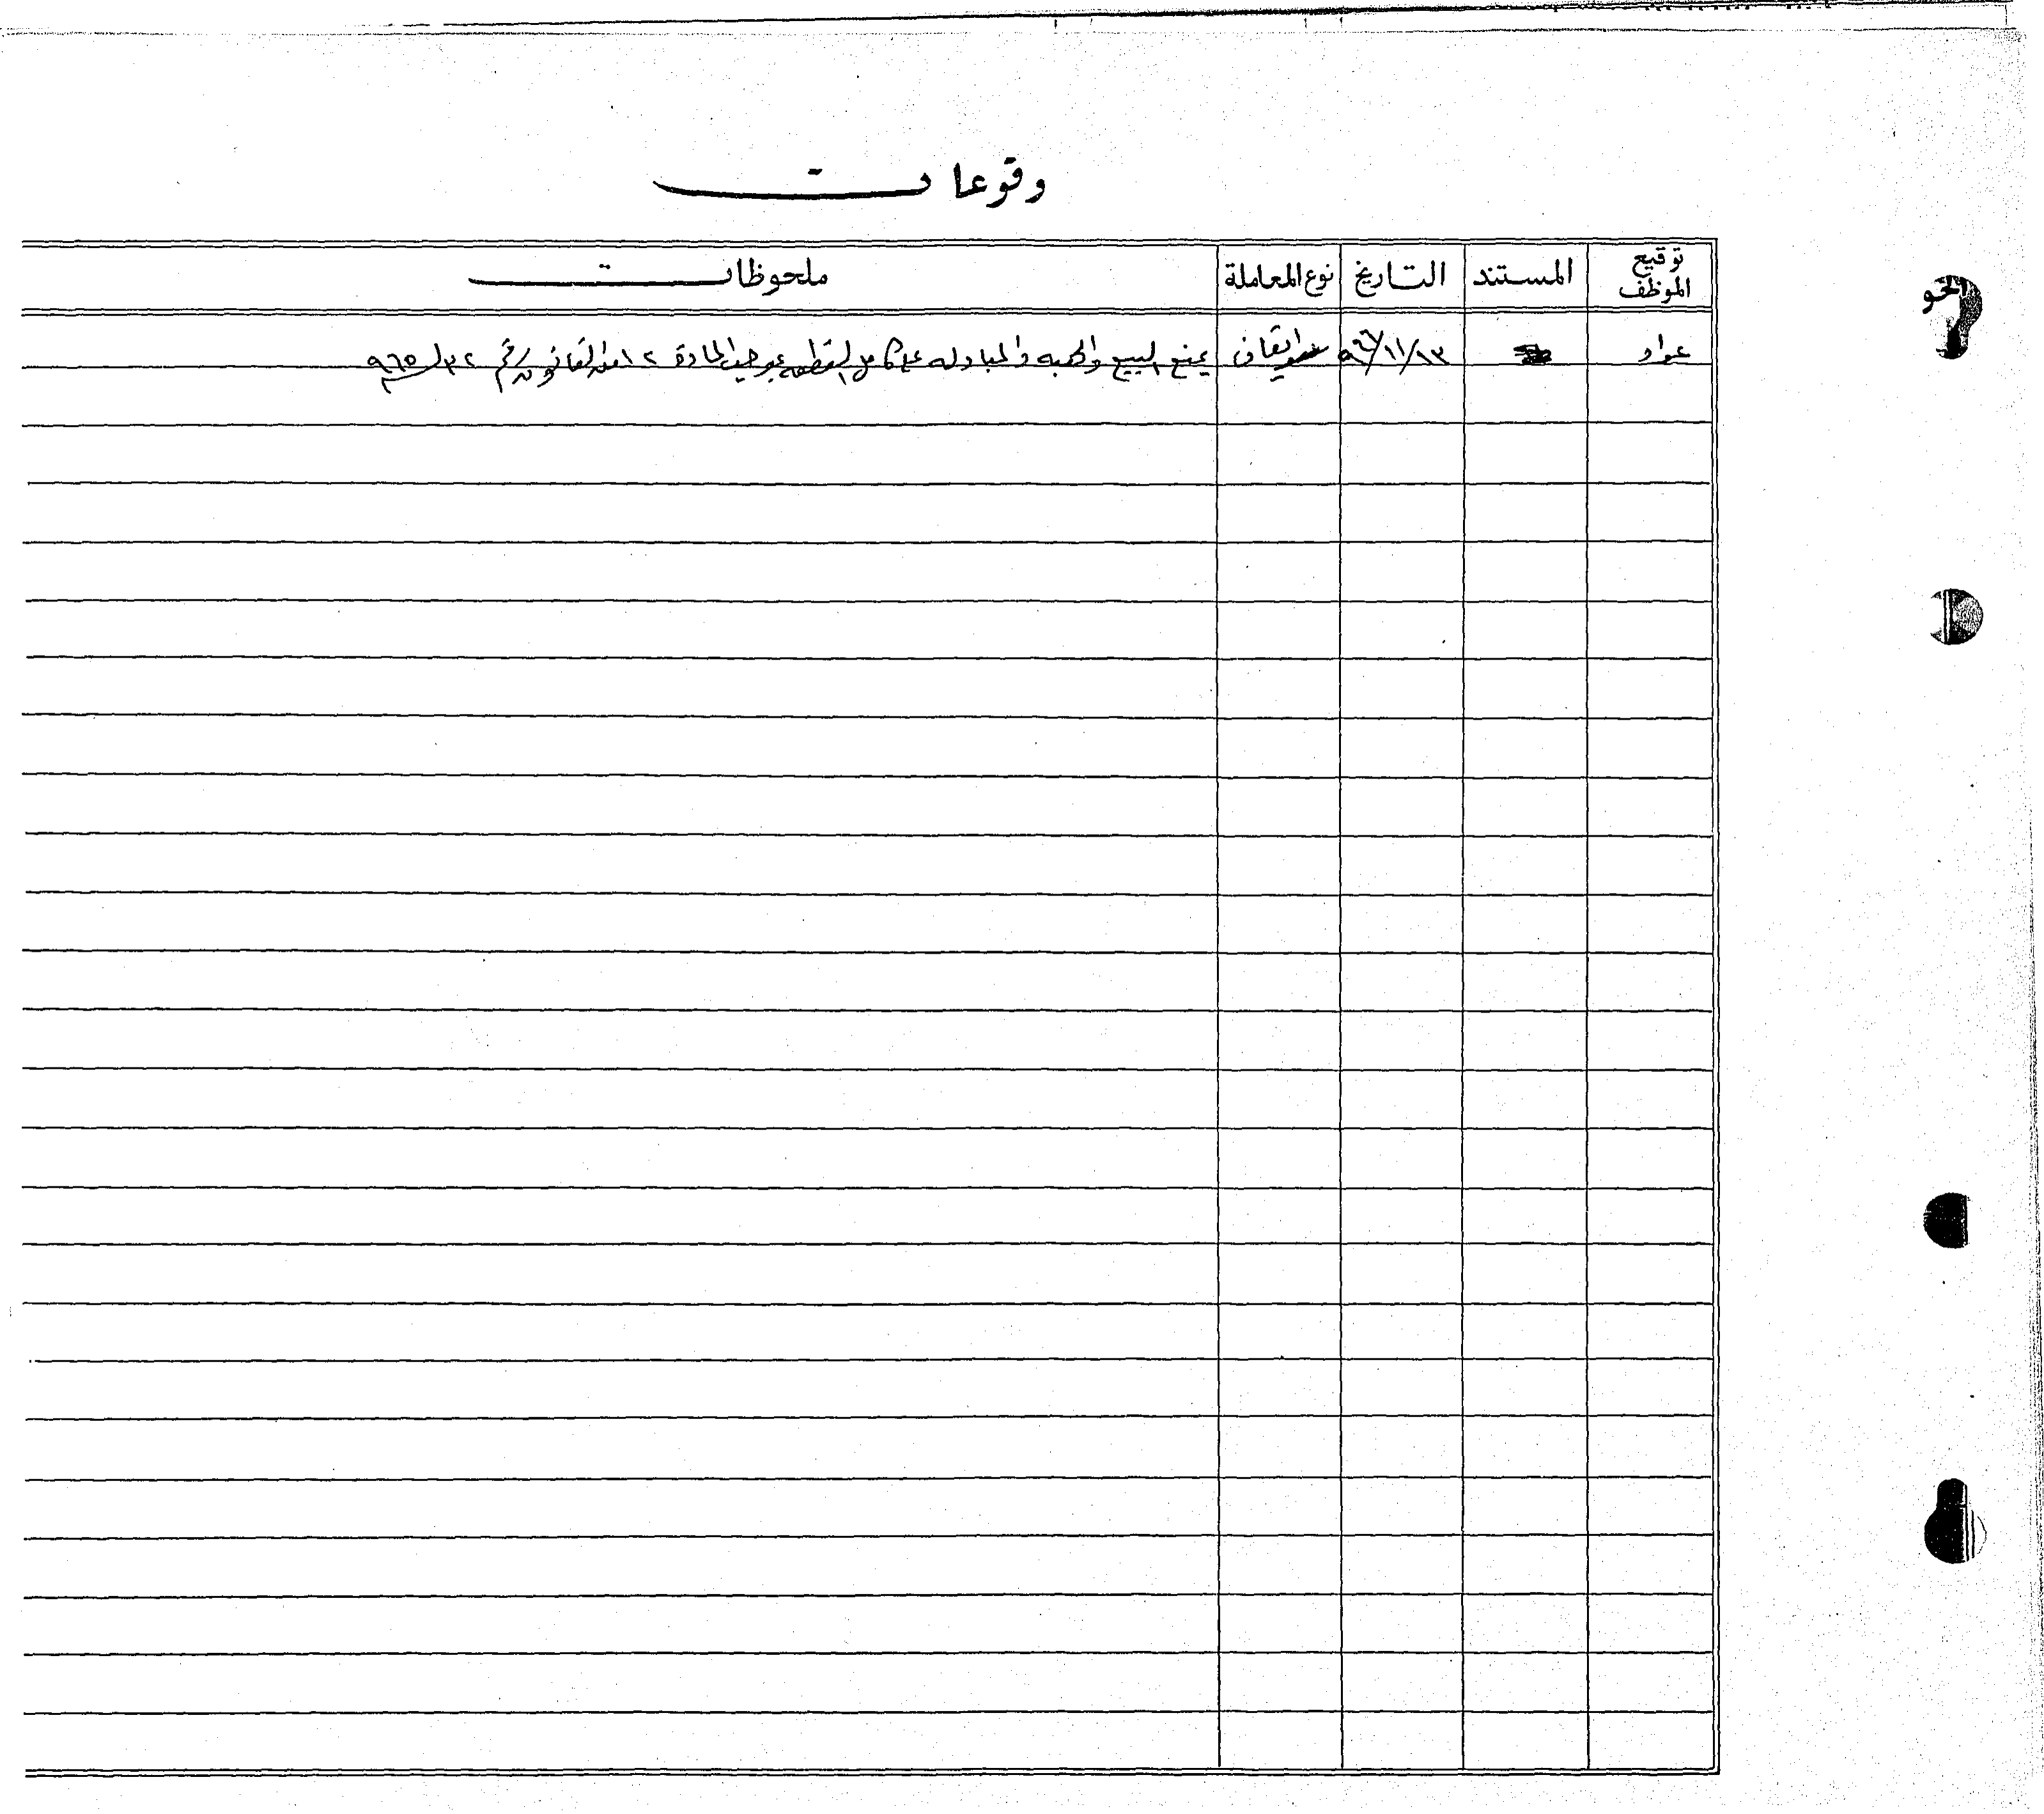 وقوعات
توقيع الموظف المستند التاريخ نوع المعاملة ملحوظات
عواد ١٣/١١/٩٦٦ ايقاف يمنع البيع والهبه والمبادله على كامل القطعه بموجب المادة ١٢ من القانون رقم ٣٢ / ٩٦٥